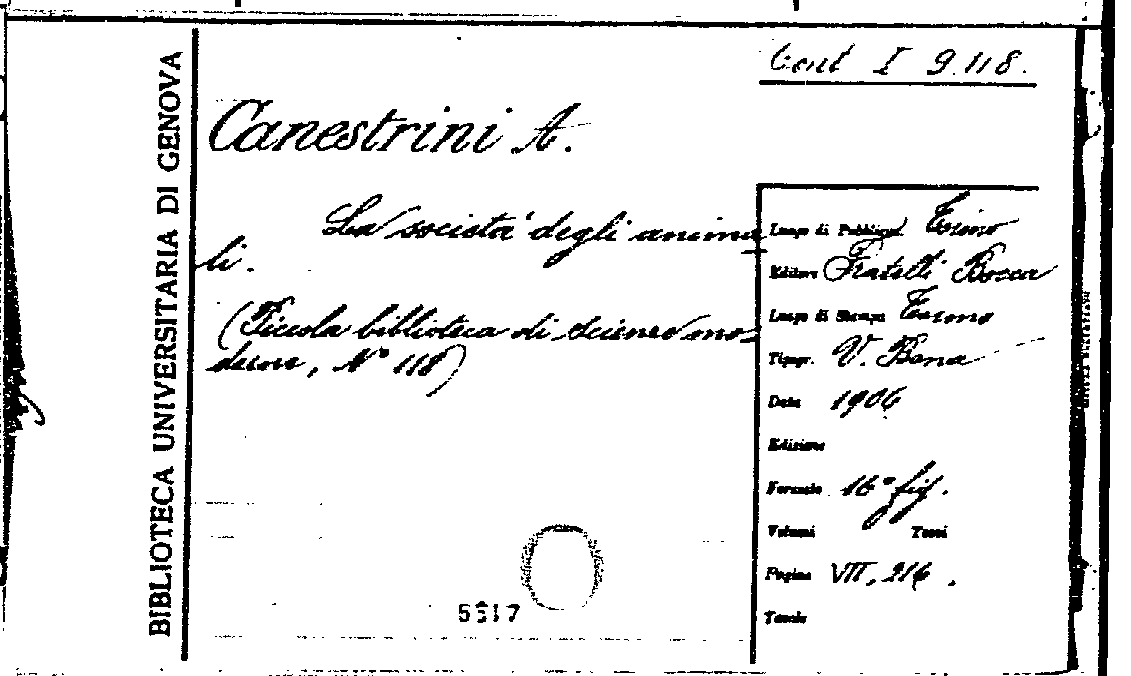 BIBLIOTECA UNIVERSITARIA DI GENOVA
I 9.118.
Canestrini A.
La società degli anima
li.
(Piccola biblioteca di Scienze mo-
derne, N° 118)
Luogo di Pubblicaz. Torino
Editore Fratelli Bocca
Luogo di Stampa Torino
Tipogr. V. Bona
Data 1906
Edizione
Formato 16° fig.
Volumi Tomi
Pagine VII, 216.
Tavole
5517